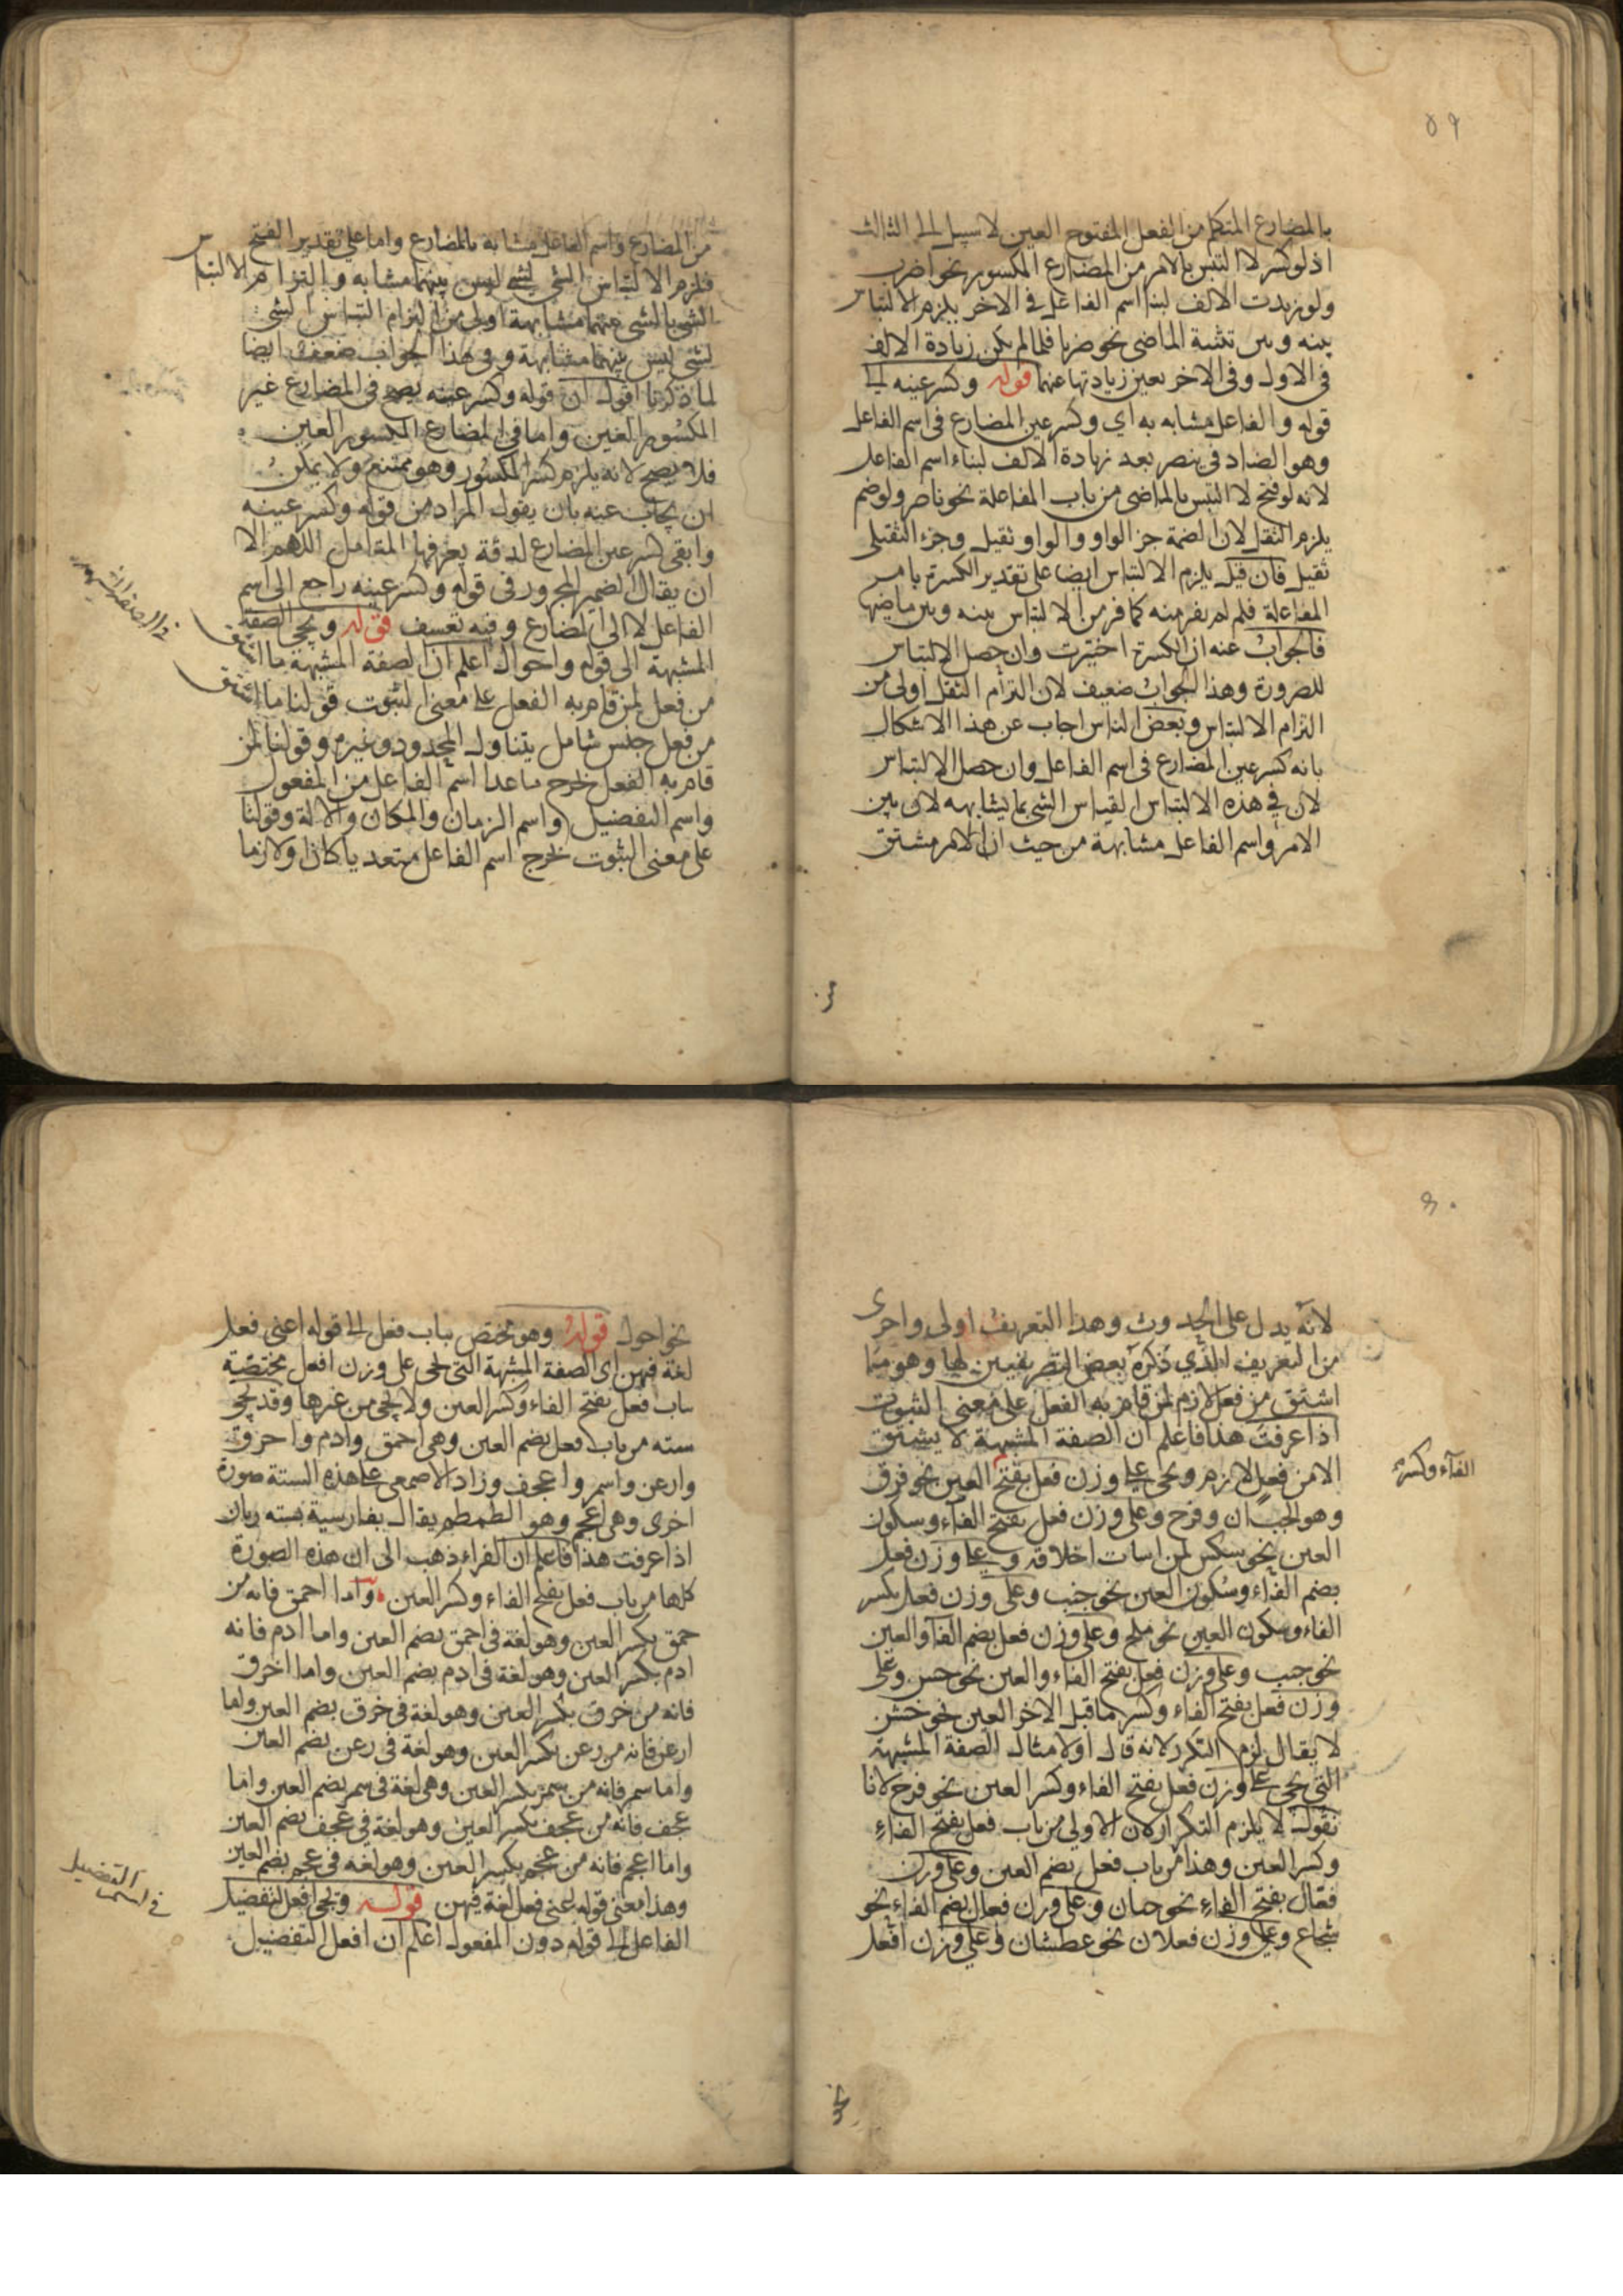 ٥٩
بالمضارع المتكلم من الفعل المفتوح العين لا سبيل الى الثالث
اذ لو كسر لا التبس بالامر من المضارع المكسور نحو اضرب
ولو زيدت الالف لبنا اسم الفاعل فى الاخر يلزم الالتباس
بينه وبين تثنية الماضى نحو ضربا فلما لم يكن زيادة الالف
فى الاول وفى الاخر بعين زيادتها عنهما قوله وكسر عينه الى
قوله والفاعل مشابه به اي وكسر عين المضارع فى اسم الفاعل
وهو الصاد فى ينصر بعد زيادة الالف لبناء اسم الفاعل
لانه لو فتح لا التبس بالماضى من باب المفاعلة نحو ناصر ولو ضم
يلزم الثقل لان الضمة جز الواو والواو ثقيل وجزء الثقيل
ثقيل فان قيل يلزم الالتباس ايضا على تقدير الكسرة بامر
المفاعلة فلم لم يفر منه كما فر من الالتباس بينه وبين ماضيها
فالجواب عنه ان الكسرة اختيرت وان حصل الالتباس
للضرورة وهذا الجواب ضعيف لان التزام الثقل اولى من
التزام الالتباس وبعض الناس اجاب عن هذا الاشكال
بانه كسر عين المضارع فى اسم الفاعل وان حصل الالتباس
لان في هذه الالتباس القياس الشى بما يشابهه لان بين
الامر واسم الفاعل مشابهة من حيث ان الامر مشتق
من
من المضارع واسم الفاعل مشابه بالمضارع واما على تقدير الفتح
فلزم الالتباس الشى لشى ليس بينهما مشابه والتزام الالتباس
الشى بالشى بينهما مشابهة اولى من التزام التباس الشى
لشى ليس بينهما مشابهة وفى هذا الجواب ضعف ايضا
لما ذكرنا اقول ان قوله وكسر عينه يصح فى المضارع غير
المكسور العين واما فى المضارع المكسور العين
فلا يصح لانه يلزم كسر المكسور وهو ممتنع ولا يمكن
ان يجاب عنه بان يقول المراد من قوله وكسر عينه
وابقى كسر عين المضارع لدقة يعرفها المتامل اللهم الا
ان يقال الضمير المجرور فى قوله وكسر عينه راجع الى اسم
الفاعل لا الى المضارع وفيه تعسف قوله ويجى الصفة
المشبهة الى قوله واحوال اعلم ان الصفة المشبهة ما اشتق
من فعل لمن قام به الفعل على معنى الثبوت قولنا ما اشتق
من فعل جنس شامل يتناول المحدود وغيره وقولنا لمن
قام به الفعل خرج ماعدا اسم الفاعل من المفعول
واسم التفضيل واسم الزمان والمكان والالة وقولنا
على معنى الثبوت خرج اسم الفاعل متعديا كان او لازما
٦٠
لانه يدل على الحدوث وهذا التعريف اولى واحرى
من التعريف الذي ذكره بعض التصريفيين لها وهو ما
اشتق من فعل لازم لمن قام به الفعل على معنى الثبوت
اذا عرفت هذا فاعلم ان الصفة المشبهة لا يشتق
الا من فعل لازم ويجى على وزن فعل بفتح العين نحو فرق
الفآء وكسر
وهو الجبان وفرح وعلى وزن فعل بفتح الفآء وسكون
العين نحو شكس لمن اسات اخلاقه وعلى وزن فعل
بضم الفآء وسكون العين نحو جنب وعلى وزن فعل بكسر
الفاء وسكون العين نحو ملح وعلى وزن فعل بضم الفآ والعين
نحو جنب وعلى وزن فعل بفتح الفاء والعين نحو حسن وعلى
وزن فعل بفتح الفاء وكسر ما قبل الاخر العين نحو خشن
لا يقال لزم التكرر لانه قال اولا مثال الصفة المشبهة
التي يجى على وزن فعل بفتح الفاء وكسر العين نحو فرح لانا
نقول لا يلزم التكرار لان الاولى من باب فعل بفتح الفاء
وكسر العين وهذا من باب فعل بضم العين وعلى وزن
فعال بفتح الفاء نحو جبان وعلى وزن فعال بضم الفاء نحو
شجاع وعلى وزن فعلان نحو عطشان وعلى وزن افعل
نحو
نحو احول قوله وهو مختص بباب فعل الى قوله اعنى فعل
لغة فيهن اى الصفة المشبهة التى يجى على وزن افعل مختصة
بباب فعل بفتح الفاء وكسر العين ولا يجى من غيرها وقد يجى
سته من باب فعل بضم العين وهى احمق وادم واخرق
وارعن واسمر واعجف وزاد الاصمعى على هذه الستة صورة
اخرى وهى اعجم وهو الطمطم يقال بفارسية بسته زبان
اذا عرفت هذا فاعلم ان الفراء ذهب الى ان هذه الصورة
كلها من باب فعل بفتح الفاء وكسر العين واما احمق فانه من
حمق بكسر العين وهو لغة فى احمق بضم العين واما ادم فانه
ادم بكسر العين وهو لغة فى ادم بضم العين واما اخرق
فانه من خرق بكسر العين وهو لغة فى خرق بضم العين واما
ارعن فانه من رعن بكسر العين وهو لغة فى رعن بضم العين
واما سمر فانه من سمر بكسر العين وهى لغة فى سمر بضم العين واما
عجف فانه من عجف بكسر العين وهو لغة فى عجف بضم العين
واما اعجم فانه من عجم بكسر العين وهو لغه فى عجم بضم العين
وهذا معنى قوله اعنى فعل لغة فيهن قوله ويجى افعل التفضيل
فى اسم التفضيل
الفاعل الى قوله دون المفعول اعلم ان افعل التفضيل